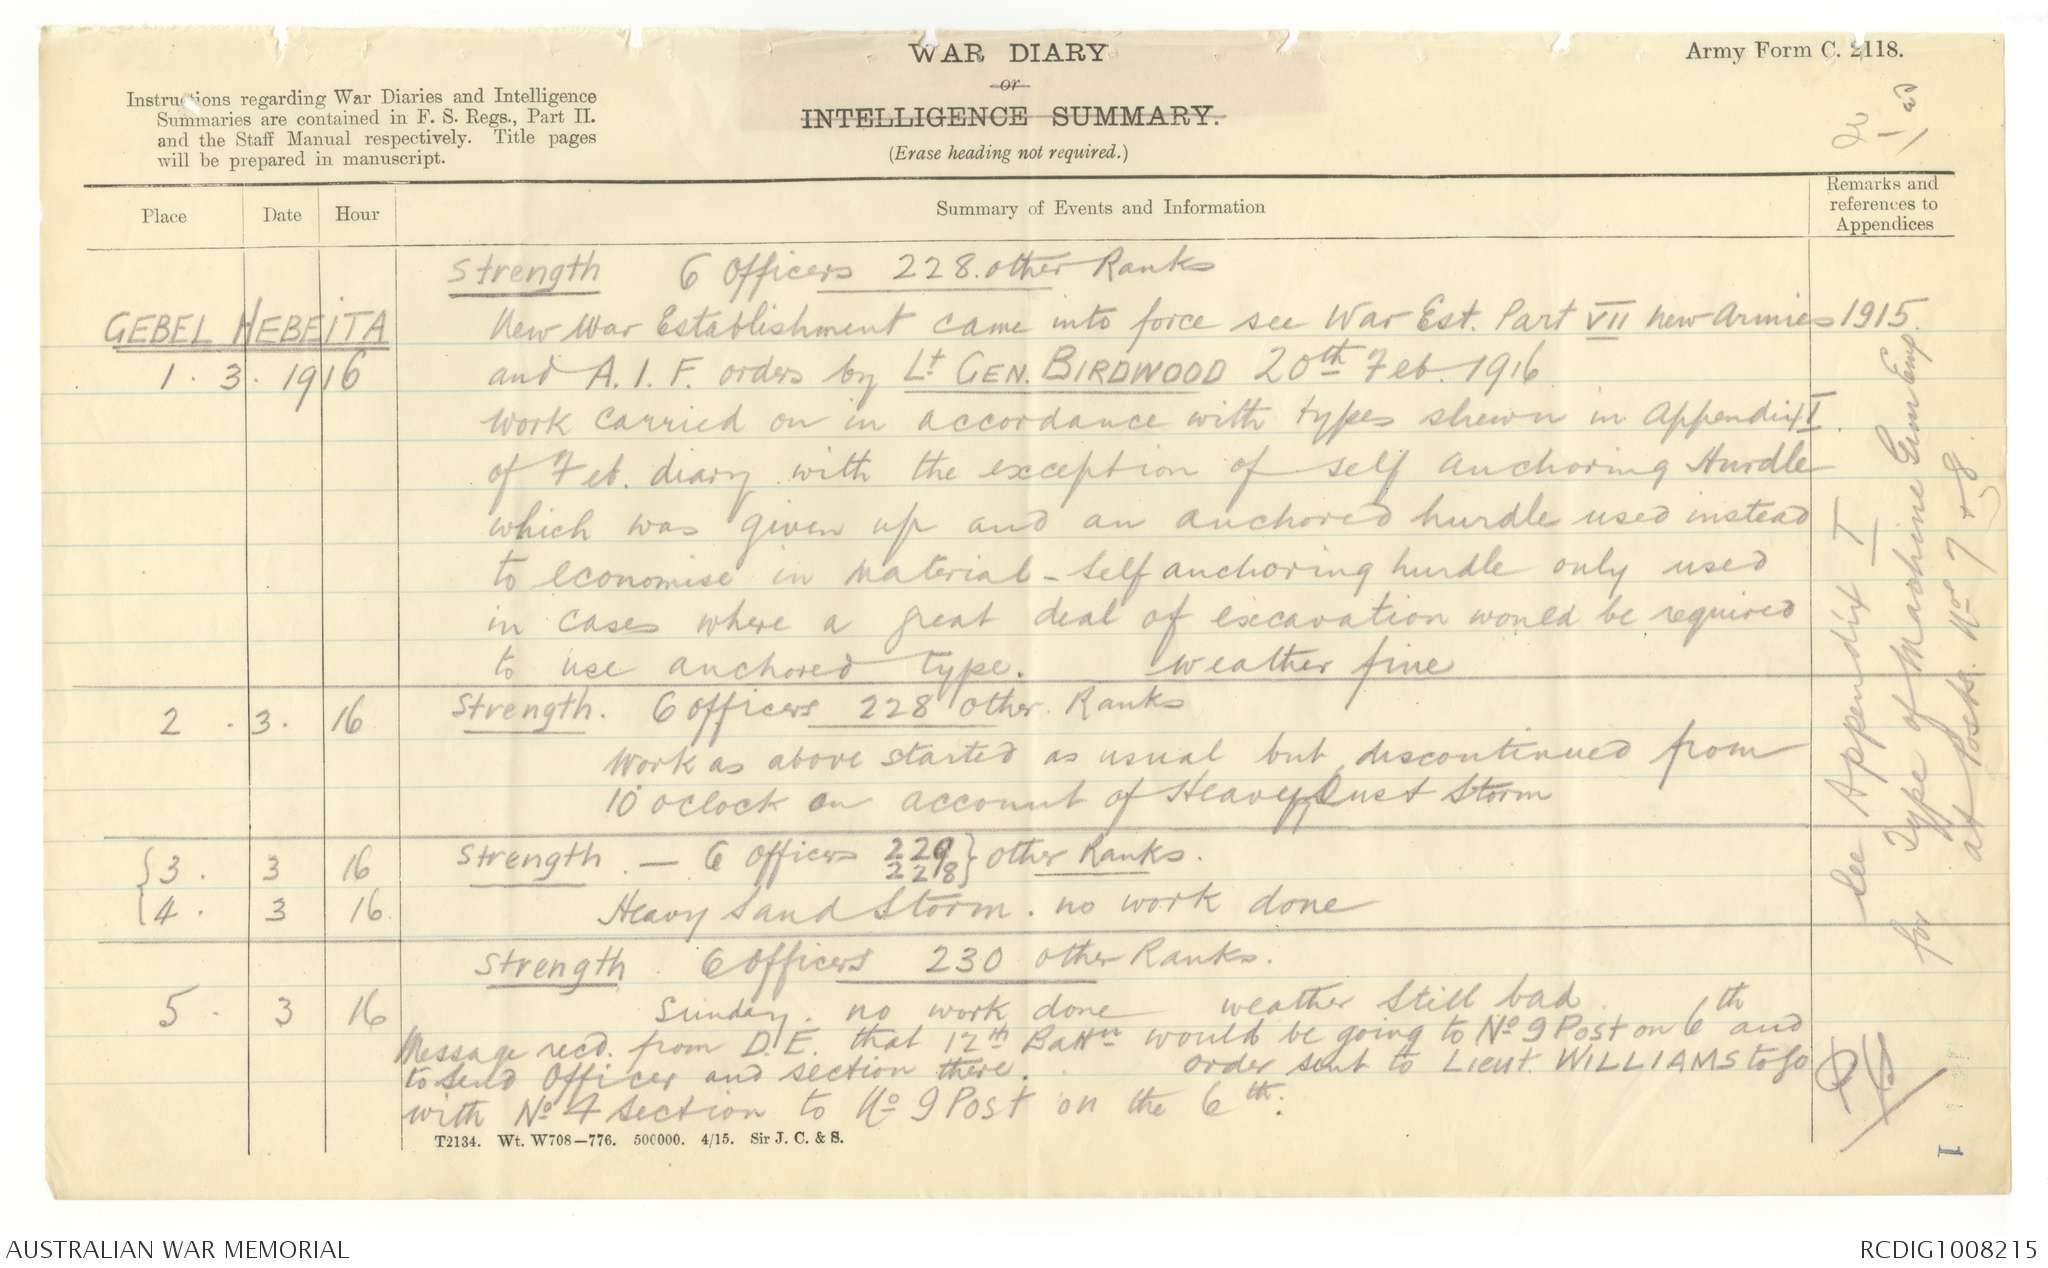 WAR DIARY
or
INTELLIGENCE SUMMARY.
(Erase heading not required.)
Army Form C. 2118.
Instructions regarding War Diaries and Intelligence
Summaries are contained in F. S. Regs., Part II.
and the Staff Manual respectively. Title pages
will be prepared in manuscript.
Place Date Hour Summary of Events and Information Remarks and
references to
Appendices
Strength 6 Officers 228. other Ranks
GEBEL HEBEITA New War Establishment came into force see War Est. Part VII new Armies 1915.
1. 3. 1916 and A. I. F. orders by Lt GEN. BIRDWOOD 20th Feb. 1916
Work carried on in accordance with types shewn in Appendix I.
of Feb. diary with the exception of self anchoring Hurdle
which was given up and an anchored hurdle used instead
to economise in material - Self anchoring hurdle only used
in cases where a great deal of excavation would be required
to use anchored type. Weather fine
2. 3. 16 Strength. 6 officers 228 other Ranks
Work as above started as usual but discontinued from
10 oclock on account of Heavy Dust Storm
3. 3 16 Strength. - 6 Officers 229 } other Ranks.
228
4. 3 16. Heavy Sand Storm. no work done
Strength 6 Officers 230 other Ranks.
5. 3 16 Sunday. no work done weather still bad.
Message recd. from D.E. that 12th Battn would be going to No 9 Post on 6th and
to send Officer and section there. order sent to Lieut. WILLIAMS to go
with No 4 Section to No 9 Post on the 6th.
See Appendix I
for Type of Machine Gun Emp.
at Posts. Nos 7 + 8.
T2134. Wt. W708—776. 500000. 4/15. Sir J. C. & S.
1
AUSTRALIAN WAR MEMORIAL
RCDIG1008215